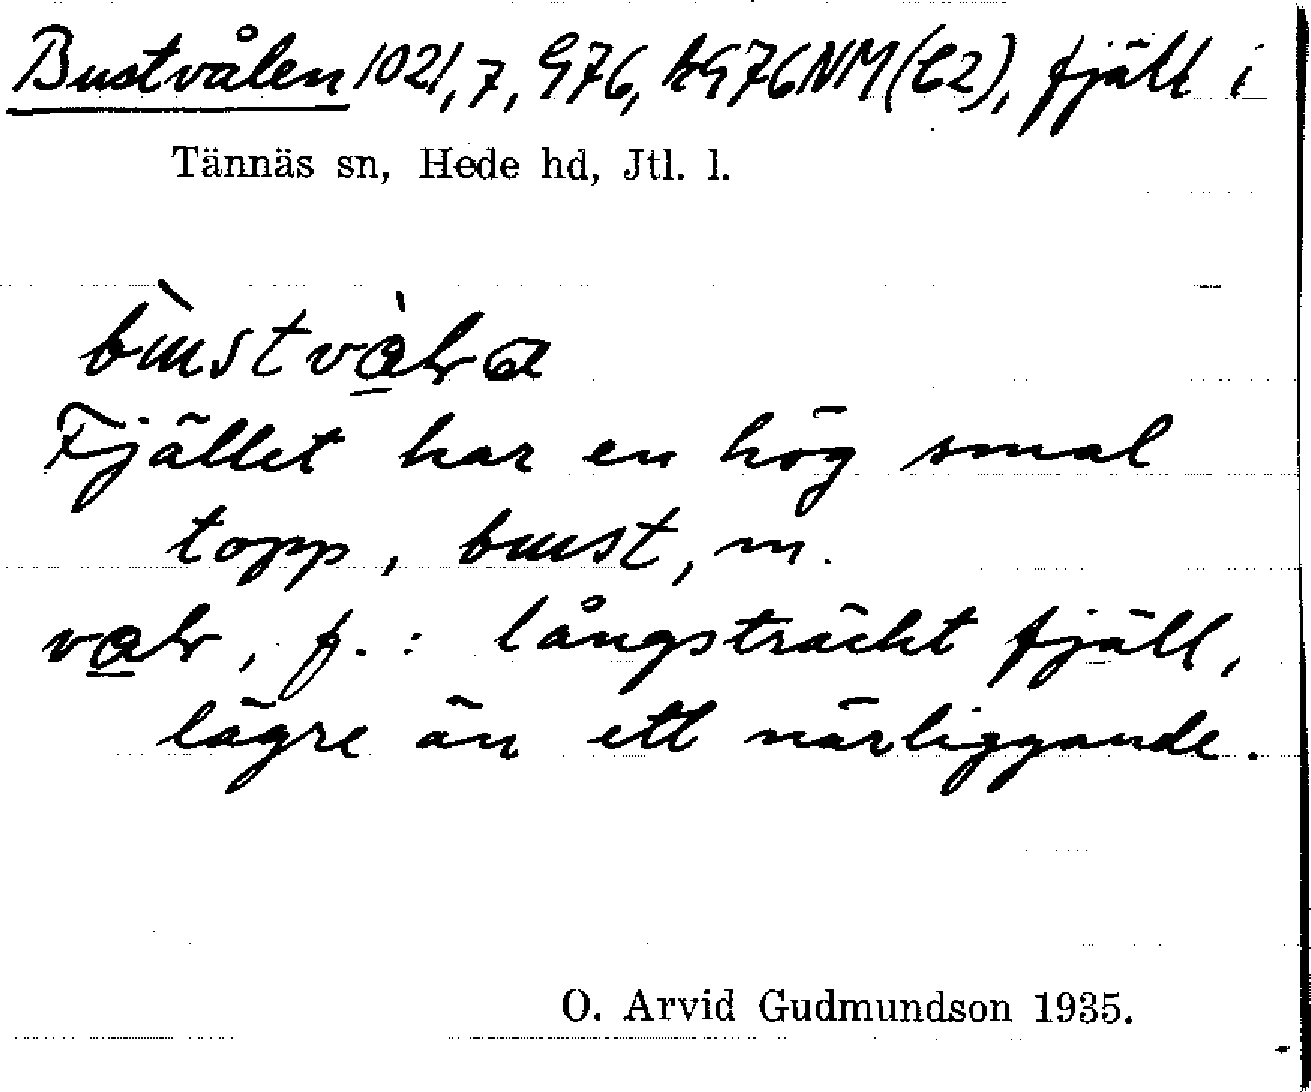 Bustvålen 1021,7, G76, kG76NM(C2), fjäll i
Tännäs sn, Hede hd, Jtl. l.
Fjället har en hög smal
topp, bust, m.
f. : långsträckt fjäll,
lägre än ett närliggande.
O. Arvid Gudmundson 1935.